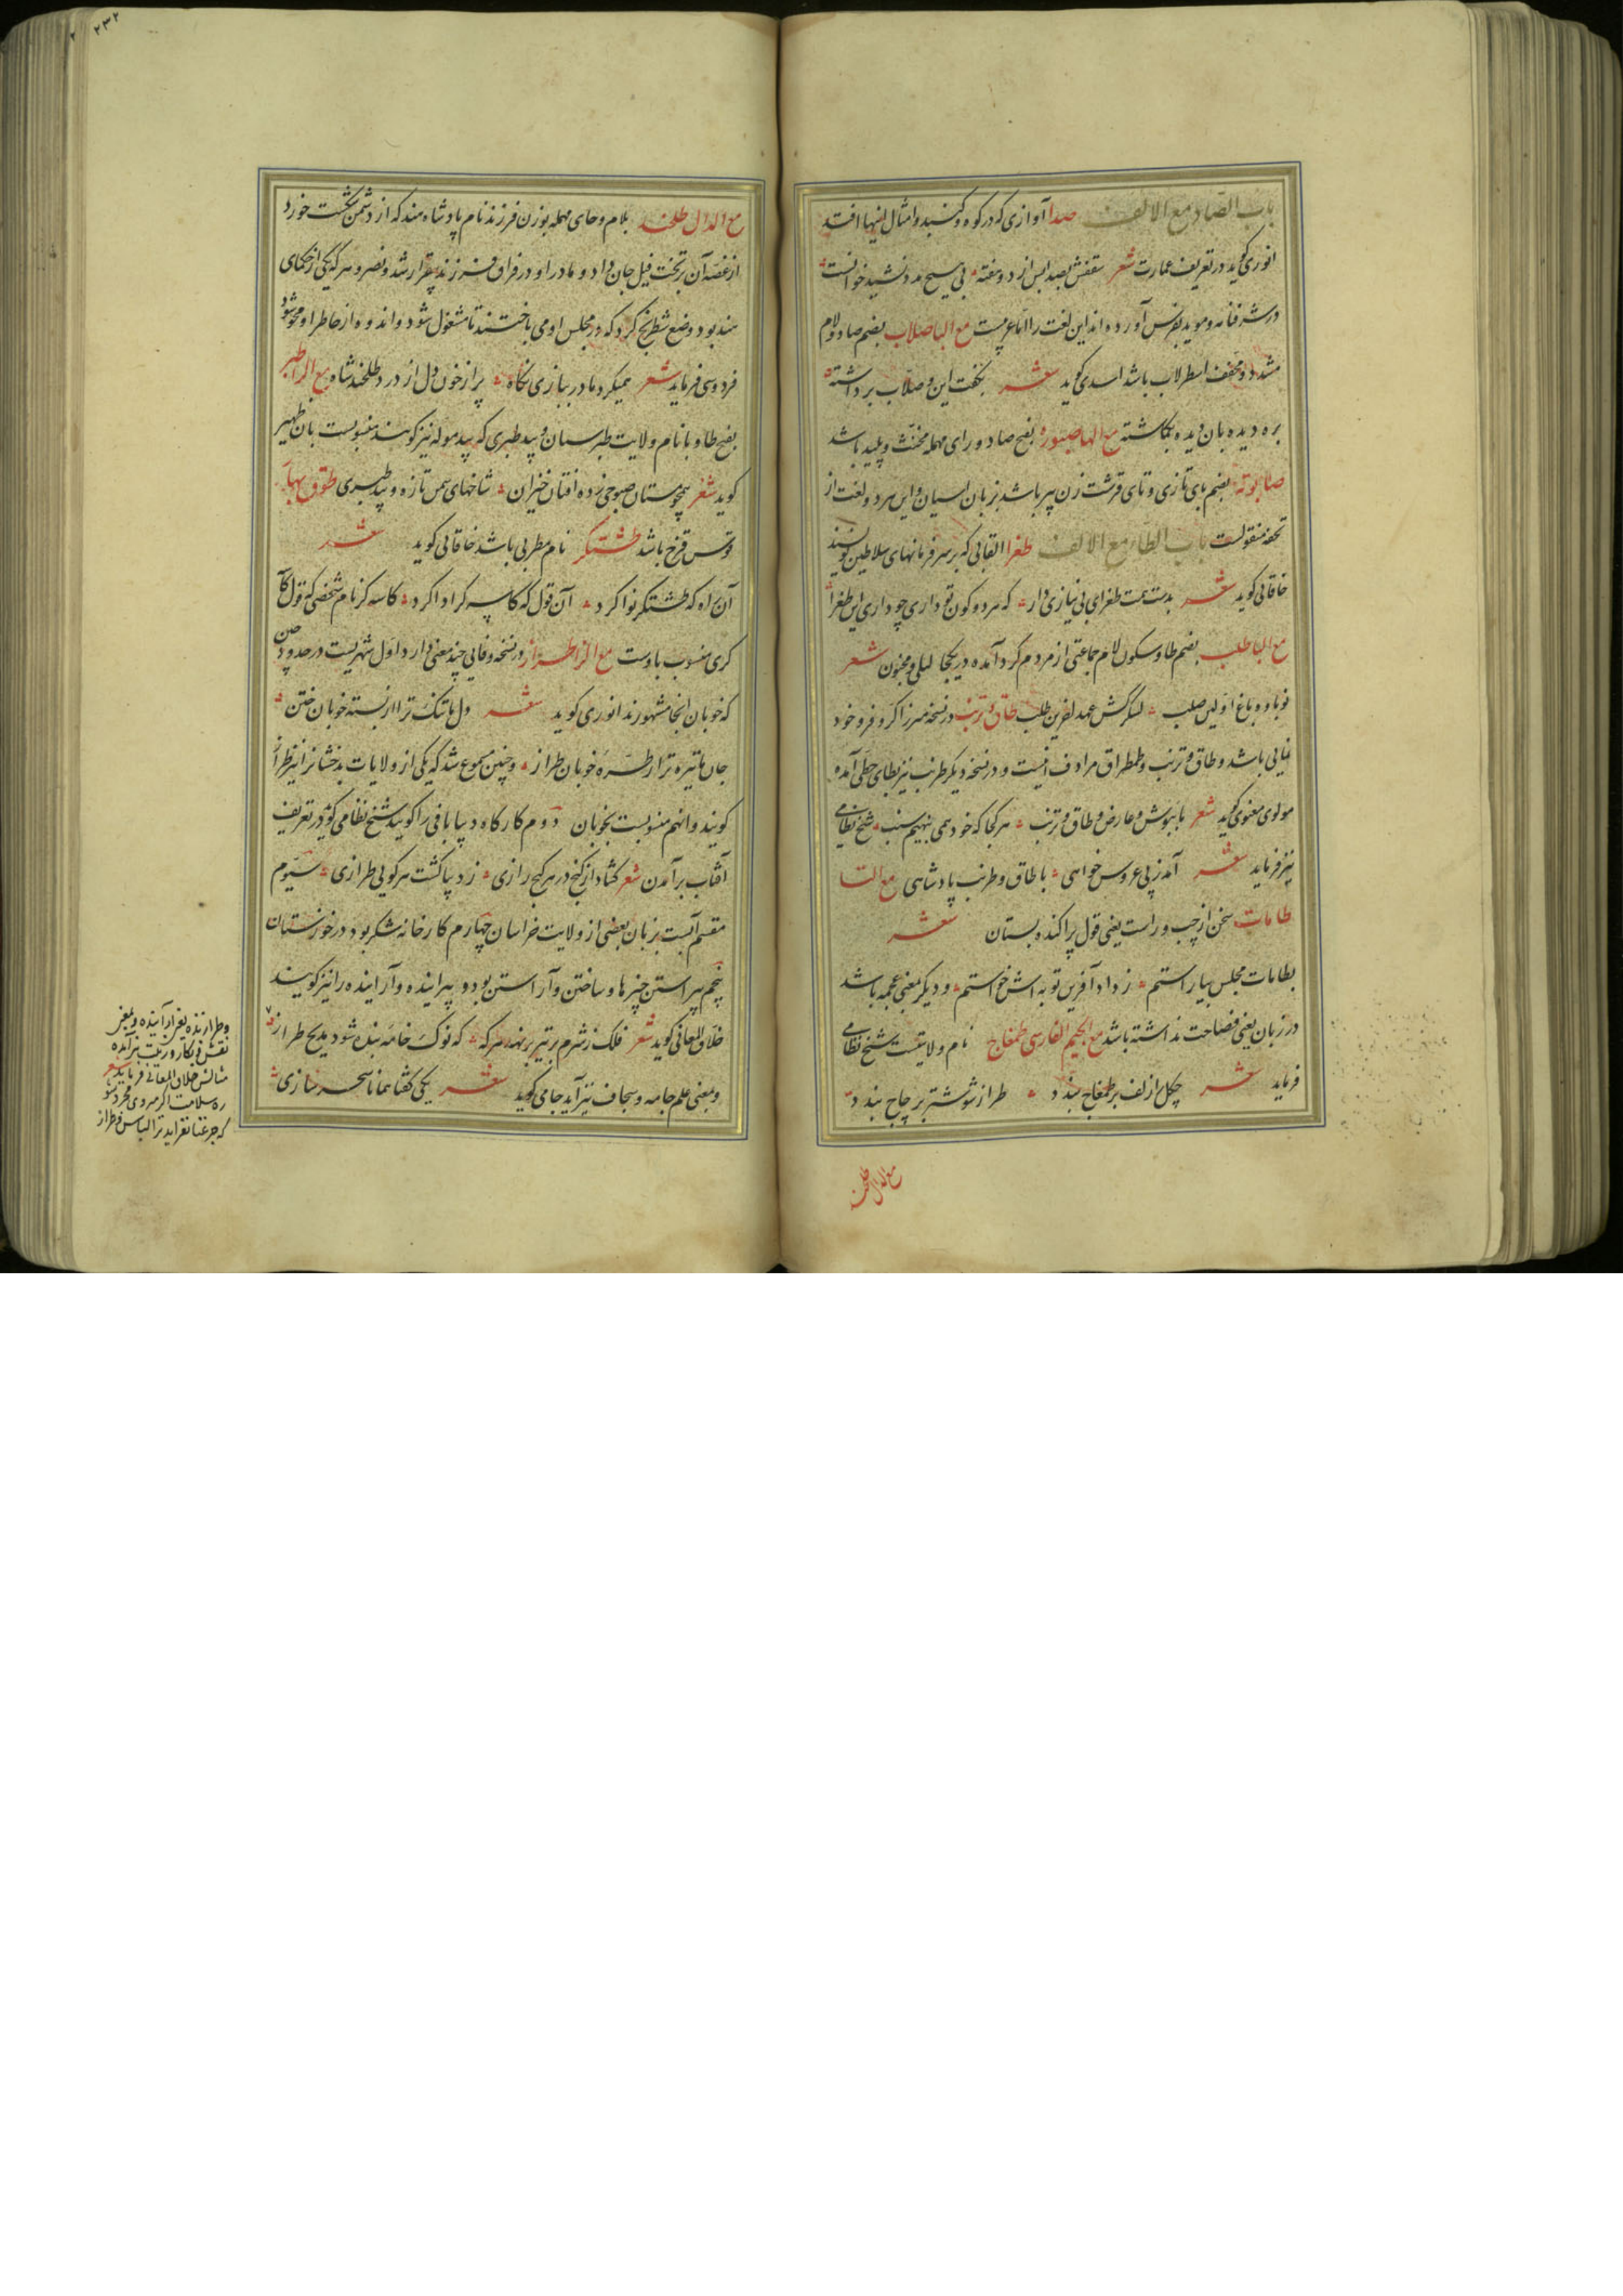 باب الصاد مع الالف صدا آوازی که در کوه و کنبد و امثال اینها افتد
انوری کوید در تعریف عمارت شعر سقفش بصدا پس از دو هفته بی هیچ مدد نشید خوانست
در شرفنامه و موید بفرس آورده اند این لغت را اما عربیست مع البا صلاب بضم صاد و لام
مشدد و مخفف اسطرلاب باشد اسدی کوید شعر بکفت این و صلاب برداشته
بره دیده بان دیده بکماشته مع الها بفتح صاد و رای مهمله مخنث و پلید باشد
صابوته بضم بای تازی و تای قرشت زن پیر باشد بزبان و این هر دو لغت از
تحفه منقولست باب الطاء مع الالف طغرا القابی که بر سر فرمانهای سلاطین نویسند
خاقانی کوید شعر بدست همت طغرای بی نیازی دار که هر دو کون تو داری چو داری این طغرا
مع البا طلب بضم طا و سکون لام جماعتی از مردم کرد آمده در یکجا لیلی و مجنون شعر
نوباوه باغ اولین صلب لشکرکش عهد آخرین طلب طاق و ترنب در نسخه میرزا کر و فر و خود
نمایی باشد و طاق و ترنب و طمطراق مرادف اینست و در نسخه دیکر طرنب نیز بطای حطی آمده
مولوی معنوی کوید شعر با بوش و عارض و طاق و ترنب هر کجا که خود همی بنهیم سنب شیخ نظامی
نیز فرماید شعر آمد ز پی عروس خواهی با طاق و طرنب پادشاهی مع التا
طامات سخن از چپ و راست یعنی قول پراکنده بستان شعر
بطامات مجلس بیاراستم ز داد آفرین توبه اش خواستم و دیکر بمعنی عجمه باشد
در زبان یعنی فصاحت نداشته باشد مع الجیم الفارسی طمغاج نام ولایتیست شیخ نظامی
فرماید شعر چکل از لف بر طمغاج بندد طراز شوشتر بر چاج بندد
مع الدال طلحند
مع الدال طلحند بلام و حای مهمله بوزن فرزند نام پادشاه هند که از دشمن شکست خورد
از غصه آن بر تخت فیل جان داد و مادر او در فراق فرزند بیقرار شد و نصر و هر که یکی از حکمای
هند بود وضع شطرنج کرد که در مجلس او می باختند تا مشغول شود و اندوه از خاطر او محو شود
فردوسی فرماید شعر همیکرد مادر ببازی نکاه پر از خون دل از درد طلحند شاه مع الرا طبر
بفتح طا و با نام ولایت طبرستان و بید طبری که بید موله نیز کویند منسوبست بآن ظهیر
کوید شعر همچو مستان صبوحی زده افتان خیزان شاخهای سمن تازه و بید طبری طوق بهار
قوس قزح باشد طشتکر نام مطربی باشد خاقانی کوید شعر
آن راه که طشتکر نوا کرد آن قول که کاسه کر ادا کرد کاسه کر نام شخصی که قول کاسه
کری منسوب باوست مع الزا طراز در نسخه وفایی چند معنی دارد اول شهریست در حدود چین
که خوبان آنجا مشهورند انوری کوید شعر دل ها تنک ترا از بسته خوبان ختن
جان ها تیره ترا از طره خوبان طراز و چنین مسموع شد که یکی از ولایات بدخشانرا نیز طراز
کویند و آنهم منسوبست بخوبان دوم کارکاه دیبا بافی را کویند شیخ نظامی کوید در تعریف
آفتاب برآمدن شعر کشاد از کنج در هر کنج رازی ز دیبا کشت هر کویی طرازی سیوم
مقسم آبست بزبان بعضی از ولایت خراسان چهارم کارخانه شکر بود در خوزستان
پنجم پیراستن چیزها و ساختن و آراستن بود و پیراینده و آراینده را نیز کویند
خلاق المعانی کوید شعر فلک ز شرم بر تیر برنهد هر که که نوک خامه بنده شود بمدیح طراز
و بمعنی علم جامه و سجاف نیز آید جامی کوید شعر یکی کفتا همانا سحر سازی
و طرازنده یعنی آراینده و بمعنی
نقش و نکار و زینت نیز آمده
مثالش خلاق المعانی فرماید شعر
ره سلامت اکر میروی مجرد شو
که جز عنا نفزاید ترا لباس و طراز
۲۳۲